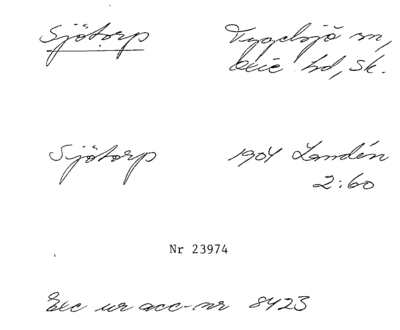 Sjötorp
Tygelsjö sn,
Oxie hd, Sk.
Sjötorp
1904 Landén
2:60
Nr 23974
Exc ur acc-nr 8423